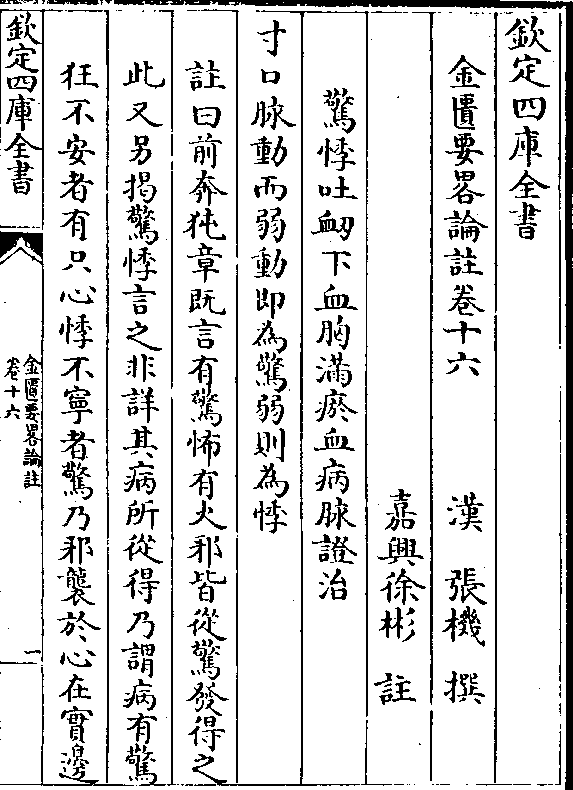 欽定四庫全書
金匱要畧論註卷十六
漢 張機 撰
嘉興徐彬 註
驚悸吐衂下血胸滿瘀血病脉證治
寸口脉動而弱動即為驚弱則為悸
註曰前奔㹠章既言有驚怖有火邪皆從驚發得之
此又另揭驚悸言之非詳其病所從得乃謂病有驚
狂不安者有只心悸不寧者驚乃邪襲於心在實邊
欽定四庫全書
金匱要畧論註
卷十六
一